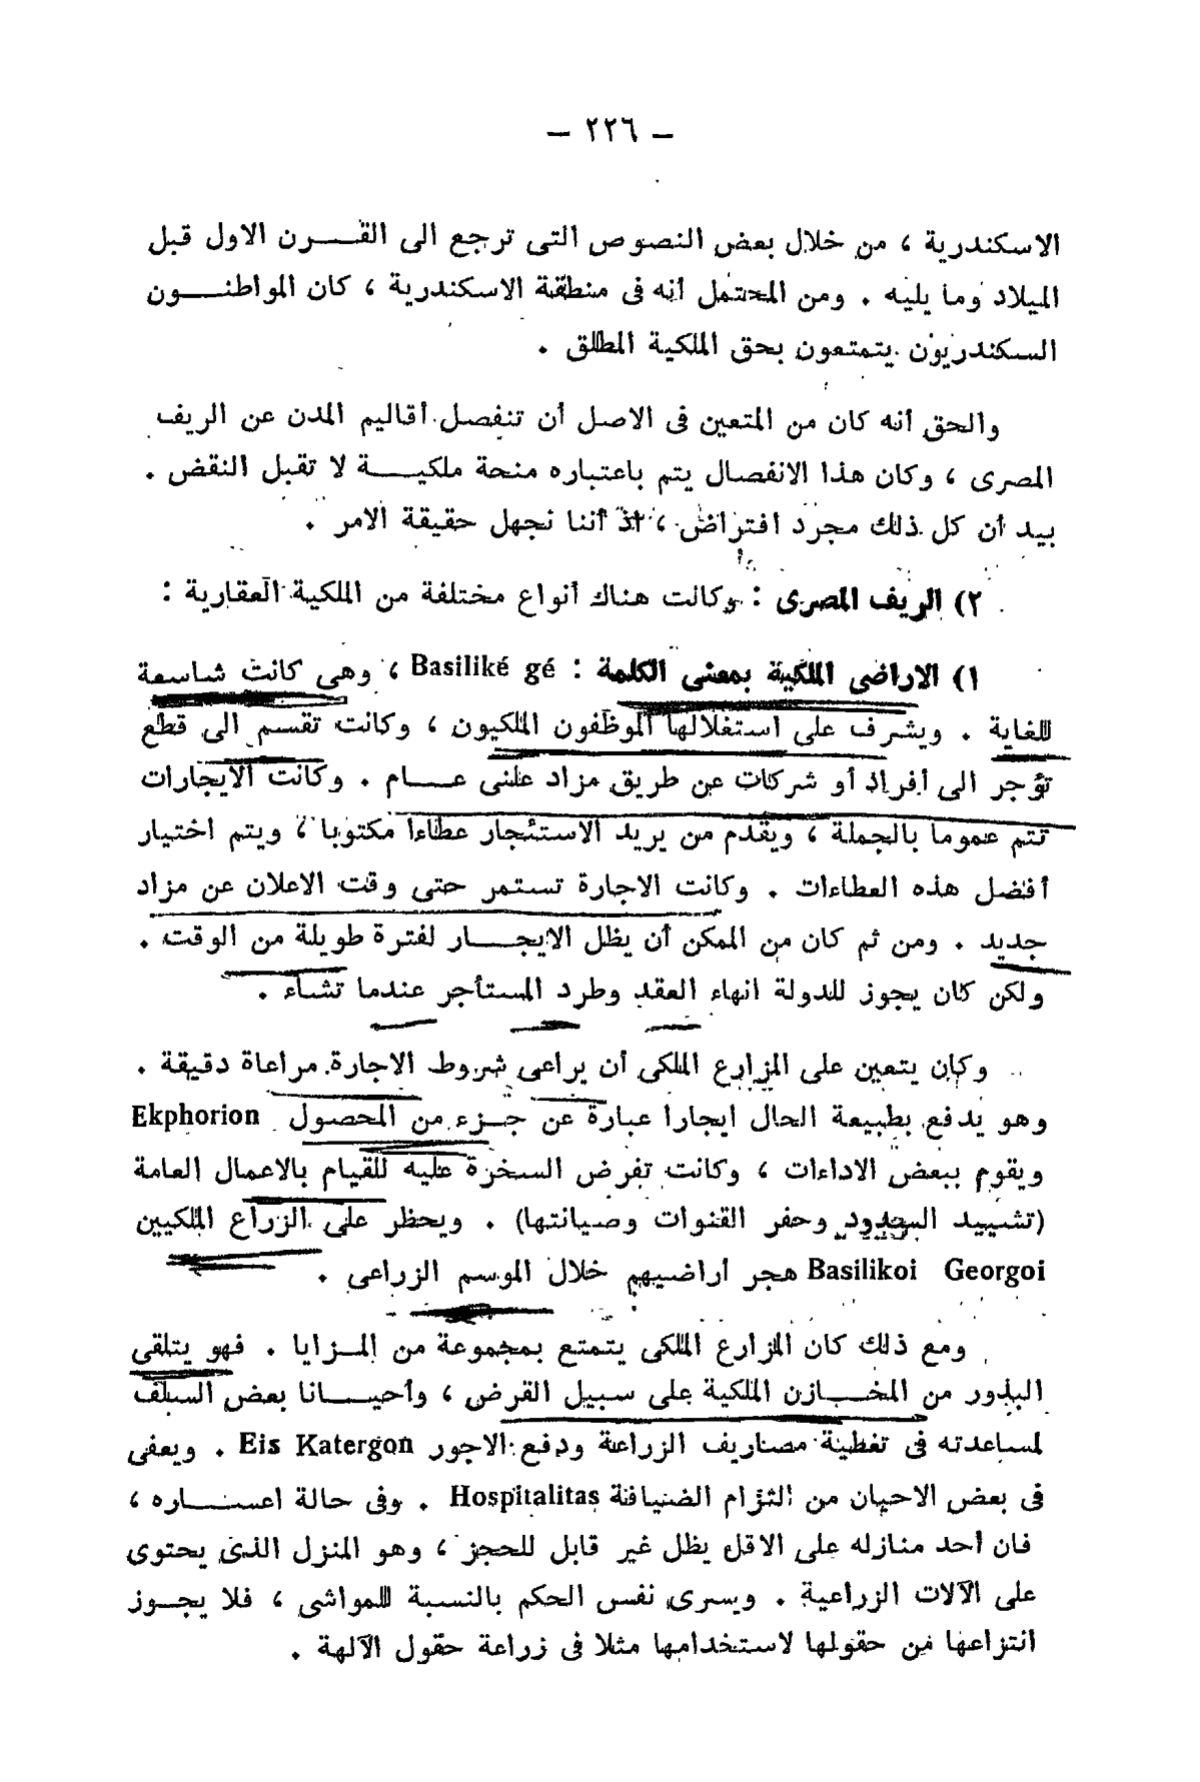 — ٢٢٦ —
الاسكندرية ، من خلال بعض النصوص التى ترجع الى القرن الاول قبل
الميلاد وما يليه . ومن المحتمل أنه فى منطقة الاسكندرية ، كان المواطنون
السكندريون يتمتعون بحق الملكية المطلق .
والحق أنه كان من المتعين فى الاصل أن تنفصل أقاليم المدن عن الريف
المصرى ، وكان هذا الانفصال يتم باعتباره منحة ملكية لا تقبل النقض .
بيد أن كل ذلك مجرد افتراض ، اذ أننا نجهل حقيقة الامر .
٢) الريف المصرى : وكانت هناك أنواع مختلفة من الملكية العقارية :
١) الاراضى الملكية بمعنى الكلمة : Basiliké gé ، وهى كانت شاسعة
للغاية . ويشرف على استغلالها الموظفون الملكيون ، وكانت تقسم الى قطع
تؤجر الى أفراد أو شركات عن طريق مزاد علنى عام . وكانت الايجارات
تتم عموما بالجملة ، ويقدم من يريد الاستئجار عطاءا مكتوبا ، ويتم اختيار
أفضل هذه العطاءات . وكانت الاجارة تستمر حتى وقت الاعلان عن مزاد
جديد . ومن ثم كان من الممكن أن يظل الايجار لفترة طويلة من الوقت .
ولكن كان يجوز للدولة انهاء العقد وطرد المستأجر عندما تشاء .
وكان يتعين على المزارع الملكى أن يراعى شروط الاجارة مراعاة دقيقة .
وهو يدفع بطبيعة الحال ايجارا عبارة عن جزء من المحصول Ekphorion
ويقوم ببعض الاداءات ، وكانت تفرض السخرة عليه للقيام بالاعمال العامة
(تشييد السدود وحفر القنوات وصيانتها) . ويحظر على الزراع الملكيين
Basilikoi Georgoi هجر أراضيهم خلال الموسم الزراعى .
ومع ذلك كان المزارع الملكى يتمتع بمجموعة من المزايا . فهو يتلقى
البذور من المخازن الملكية على سبيل القرض ، وأحيانا بعض السلف
لمساعدته فى تغطية مصاريف الزراعة ودفع الاجور Eis Katergon . ويعفى
فى بعض الاحيان من التزام الضيافة Hospitalitas . وفى حالة اعساره ،
فان أحد منازله على الاقل يظل غير قابل للحجز ، وهو المنزل الذى يحتوى
على الآلات الزراعية . ويسرى نفس الحكم بالنسبة للمواشى ، فلا يجوز
انتزاعها من حقولها لاستخدامها مثلا فى زراعة حقول الآلهة .